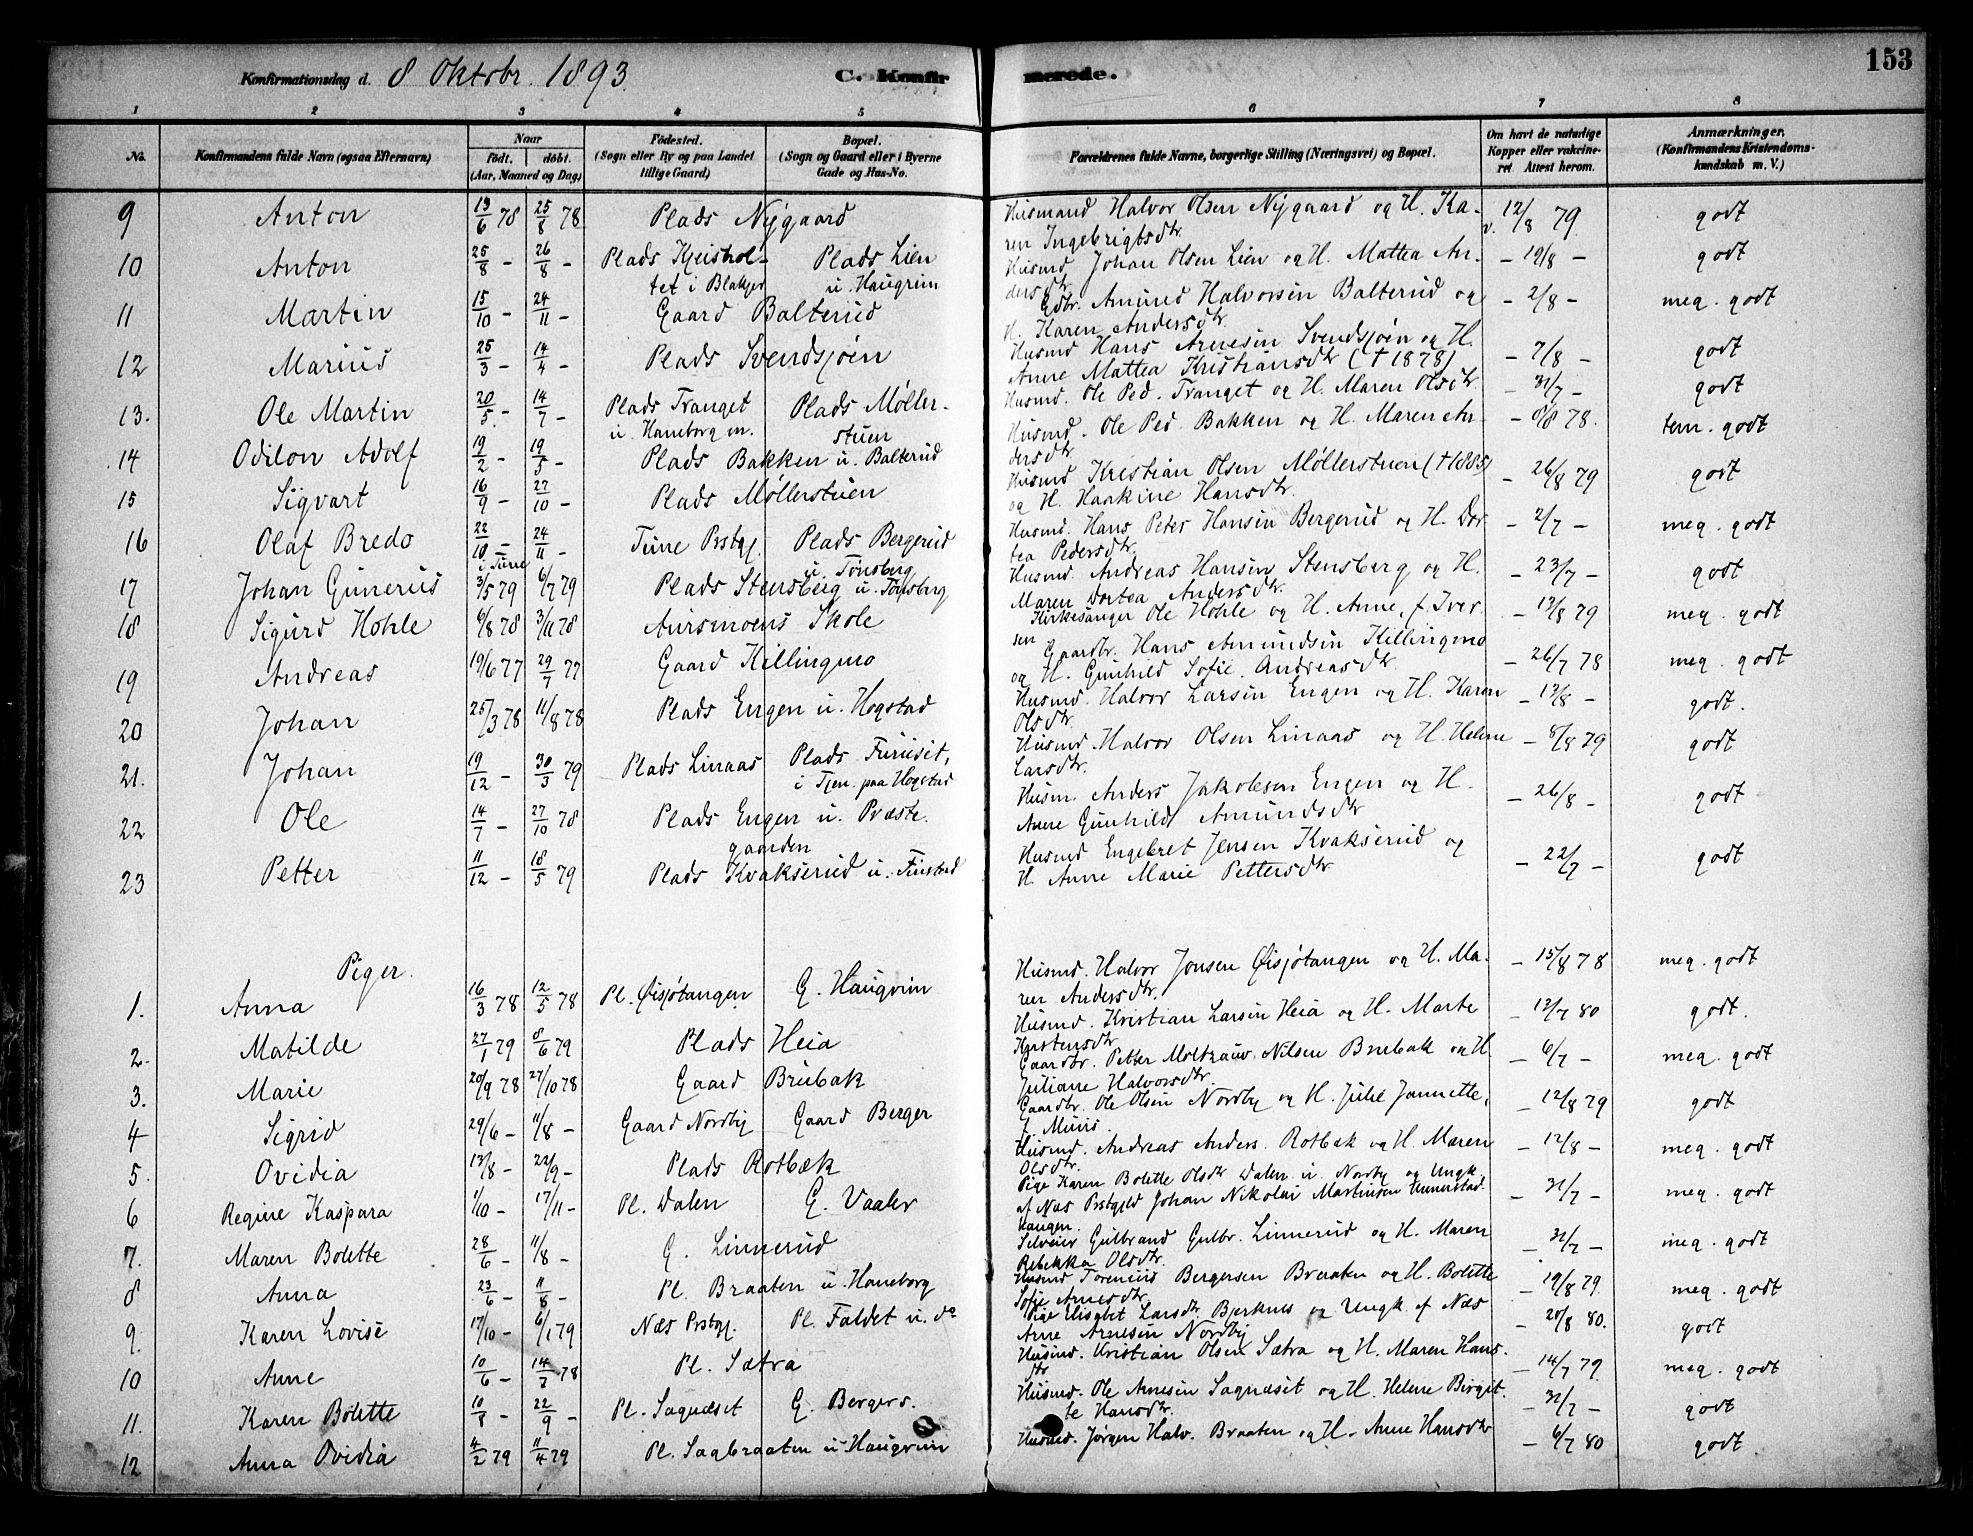 153
Konfirmationsdag d. 8 Oktobr. 1893.
C. Konfirmerede.
1 2 3 4 5 6 7 8
No. Konfirmandens fulde Navn (ogsaa Efternavn) Naar født. døbt. (Aar, Maaned og Dag) Fødested. (Sogn eller By og paa Landet tillige Gaard) Bopæl. (Sogn og Gaard eller i Byerne Gade og Hus-No. Forældrenes fulde Navne, borgerlige Stilling (Næringsvei) og Bopæl. Om havt de naturlige Kopper eller vakcineret. Attest herom. Anmærkninger. (Konfirmandens Kristendomskundskab m. V.)
9 Anton 13/6 78 25/8 78 Plads Nygaard Husmand Halvor Olsen Nygaard og H. Karen Ingebrigtsdtr. v. 12/8 79 godt
10 Anton 25/8 – 26/8 – Plads Kjeisholtet i Blakjer Plads Lien u. Haugrim Husmd Johan Olsen Lien og H. Mattea Andersdtr. – 19/8 – godt
11 Martin 15/10 – 24/11 – Gaard Balterud Gdbr. Amund Halvorsen Balterud og H. Karen Andersdtr. – 2/8 – meg. godt
12 Marius 25/3 – 14/4 – Plads Svendsjøen Husmd Hans Arnesen Svendsjøen og H. Anne Mattea Kristiansdtr († 1878) – 7/8 – godt
13. Ole Martin 20/5 – 14/7 – Plads Tranget u. Haneborg m. Plads Møllerstuen Husmd. Ole Ped. Tranget og H. Maren Olsdtr. – 31/7 – godt
14 Odilon Adolf 19/2 – 19/5 – Plads Bakken u. Balterud Husmd. Ole Ped. Bakken og H. Maren Andersdtr – 8/8 78. tem. godt
15 Sigvart 16/9 – 27/10 – Plads Møllerstuen Husmd Kristian Olsen Møllerstuen († 1885) og H. Haakine Hansdtr. – 26/8 79 godt
16 Olaf Bredo 22/10 – i Tune 24/11 – Tune Prstgj. Plads Bergerud u. Tønsberg Husmd. Hans Peter Hansen Bergerud og H. Dortea Pedersdtr. – 2/7 – meg. godt
17 Johan Gunerius 3/5 79 6/7 79 Plads Stensberg u. Tønsberg Husmd. Andreas Hansen Stensberg og H. Maren Dortea Andersdtr. – 23/7 – godt
18 Sigurd Hohle 6/8 78 3/11 78 Aursmoens Skole Kirkesanger Ole Hohle og H. Anne, f. Iversen – 13/8 79 meg. godt
19 Andreas 19/6 77 29/7 77 Gaard Killingmo Gaardbr. Hans Amundsen Killingmo og H. Gunhild Sofie Andreasdtr. – 26/7 78 meg. godt
20 Johan 25/3 78 11/8 78 Plads Engen u. Hogstad Husmd. Halvor Larsen Engen og H. Karen Olsdtr. – 13/8 – godt.
21. Johan 19/12 – 30/3 79 Plads Linaas Plads Furuset, i Tjen. paa Hogstad Husmd. Halvor Olsen Linaas og H. Helene Larsdtr. – 8/8 79 godt
22 Ole 14/7 – 27/10 78 Plads Engen u. Præstegaarden Husm. Anders Jakobsen Engen og H. Anne Gunhild Amundsdtr – 26/8 – godt
23 Petter 11/12 – 18/5 79 Plads Kvakserud u. Finstad Husmd Engebret Jensen Kvakserud og H. Anne Marie Pettersdtr – 22/7 – godt
Piger.
1. Anna 16/3 78 12/5 78 Pl. Øisjøtangen G. Haugrim Husmd. Halvor Jonsen Øisjøtangen og H. Maren Andersdtr. – 15/8 78 meg. godt
2. Matilde 27/1 79 8/6 79 Plads Heia Husmd. Kristian Larsen Heia og H. Marte Karstensdtr – 13/7 80 godt.
3. Marie 20/9 78 27/10 78 Gaard Brubak Gaardbr. Petter Moltzau Nilsen Brubak og H. Juliane Halvorsdtr. – 6/7 – meg. godt
4 Sigrid 29/6 – 11/8 – Gaard Nordby Gaard Berger Gaardbr. Ole Olsen Nordby og H. Julie Jannette, f. Muus. – 12/8 79 godt
5. Ovidia 13/8 – 22/9 – Plads Rotbæk Husmd. Andreas Anders. Rotbæk og H. Maren Olsdtr. – 12/8 – meg. godt
6 Regine Kaspara 1/10 – 17/11 – Pl. Dalen G. Vaaler Pige Karen Bolette Olsdtr Dalen u. Nordby og Ungk. af Næs Prstgjld Johan Nikolai Martinsen – 31/7 – meg. godt
7. Maren Bolette 28/6 – 11/8 – G. Linnerud Selveier Gulbrand Gulbr. Linnerud og H. Maren Rebekka Olsdtr. – 31/7 – meg. godt
8 Anna 23/6 – 11/8 – Pl. Braaten u. Haneborg Husmd Torenius Bergersen Braaten og H. Bolette Sofie Arnesdtr. – 19/8 79 meg. godt
9. Karen Lovise 17/10 – 6/1 79 Næs Prstgj. Pl. Faldet u. do Pige Elisabet Larsdtr Bjerknes og Ungk. af Næs Arne Arnesen Nordby – 20/8 80. godt
10 Anne 10/6 – 14/7 78 Pl. Sætra Husmd. Kristian Olsen Sætra og H. Maren Hansdtr – 14/7 79 meg. godt
11. Karen Bolette 10/8 – 22/9 – Pl. Sagnæset G. Bergers. Husmd. Ole Arnesen Sagnæset og H. Helene Birgitte Hansdtr. – 31/7 – godt
12 Anna Ovidia 4/2 79 11/4 79 Pl. Sagbraaten u. Haugrim Husmd. Jørgen Halv. Braaten og H. Anne Hansdtr – 6/7 80 godt.